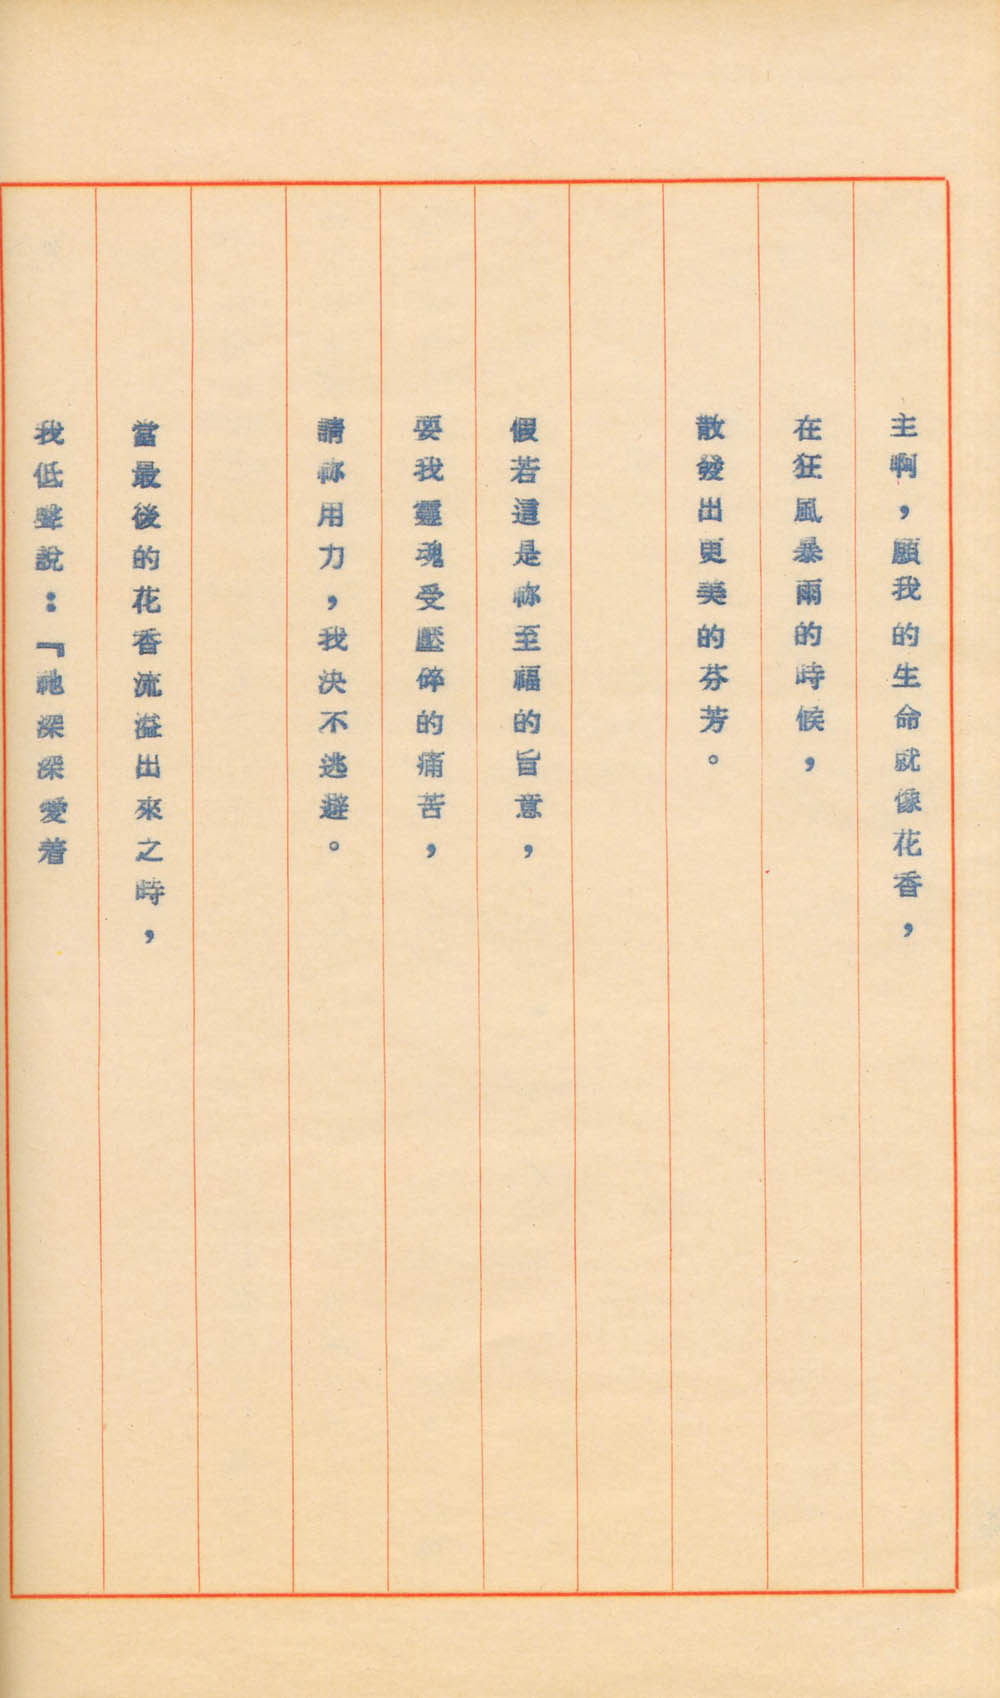 主啊，願我的生命就像花香，
在狂風暴雨的時候，
散發出更美的芬芳。
假若這是祢至福的旨意，
要我靈魂受壓倅的痛苦，
請祢用力，我決不逃避。
當最後的花香流溢出來之時，
我低聲說：『祂深深愛着